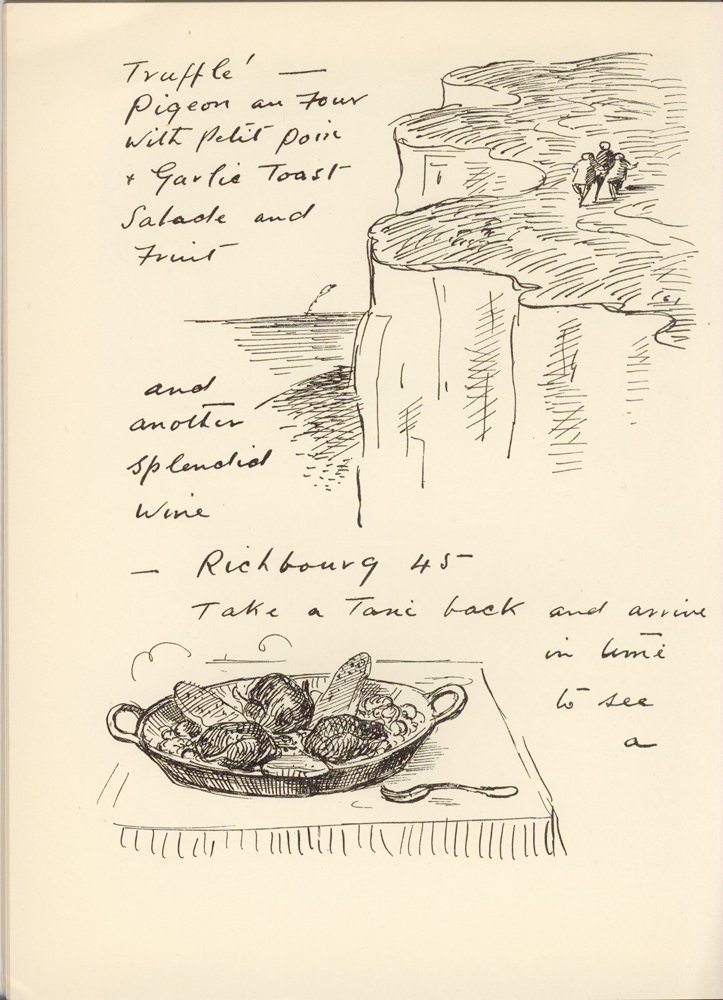 Truffle' —
Pigeon au Four
with Petit Poin
+ Garlic Toast
Salade and
Fruit
and
another
splendid
wine
— Richbourg 45
Take a Taxi back and arrive
in time
to see
a